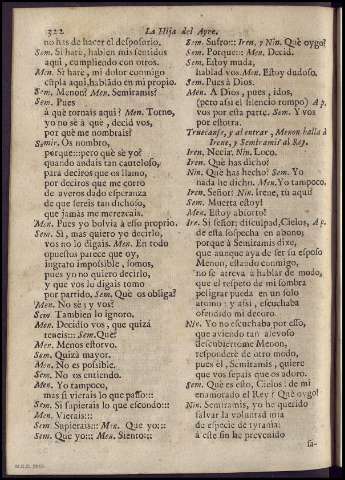 322
La Hija del Ayre.
no has de hacer el desposorio.
Sem. Si haré, hablen mis sentidos
aqui, cumpliendo con otros.
Men. Si haré, mi dolor conmigo
cũpla aqui, hablãdo en mi propio.
Sem. Menon? Men. Semiramis?
Sem. Pues
à què tornais aqui? Men. Torno,
yo no sè à què, decid vos,
por què me nombrais?
Semir. Os nombro,
porque::: pero què sè yo?
quando andais tan cauteloso,
para deciros que os llamo,
por deciros que me corro
de averos dado esperanza
de que sereis tan dichoso,
que jamás me merezcais.
Men. Pues yo bolvia à esso proprio.
Sem. Si, mas quiero yo decirlo,
vos no lo digais. Men. En todo
opuestos parece que oy,
ingrato impossible, somos,
pues yo no quiero decirlo,
y que vos lo digais tomo
por partido. Sem. Què os obliga?
Men. No sè: y vos?
Sem. Tambien lo ignoro.
Men. Decidlo vos, que quizá
teneis::: Sem. Què?
Men. Menos estorvo.
Sem. Quizá mayor.
Men. No es possible.
Sem. No os entiendo.
Men. Yo tampoco,
mas si vierais lo que passo:::
Sem. Si supierais lo que escondo:::
Men. Vierais:::
Sem. Supierais::: Men. Que yo:::
Sem. Que yo::: Men. Siento:::
Sem. Sufro::: Iren. y Nin. Què oygo?
Sem. Porque::: Men. Decid.
Sem. Estoy muda,
hablad vos. Men. Estoy dudoso.
Sem. Pues à Dios.
Men. A Dios, pues, idos,
(pero assi el silencio rompo) Ap.
vos por esta parte. Sem. Y vos
por essotra.
Truecanse, y al entrar, Menon halla à
Irene, y Semiramis al Rey.
Iren. Necia. Nin. Loco.
Iren. Què has dicho?
Nin. Què has hecho? Sem. Yo
nada he dicho. Men. Yo tampoco.
Iren. Señor? Nin. Irene, tú aqui?
Sem. Muerta estoy!
Men. Estoy absorto!
Ire. Si señor: disculpad, Cielos, Ap.
de esta sospecha en abono;
porque à Semiramis dixe,
que aunque aya de ser su esposo
Menon, estando conmigo,
no se atreva à hablar de modo,
que el respeto de mi sombra
peligrar pueda en un solo
atomo: y assi, escuchaba
ofendido mi decoro.
Nin. Yo no escuchaba por esso,
que aviendo tan alevoso
descubiertome Menon,
responderé de otro modo,
pues él, Semiramis, quiere
que vos sepais que os adoro.
Sem. Què es esto, Cielos! de mi
enamorado el Rey? Què oygo!
Nin. Semiramis, yo he querido
salvar la voluntad mia
de especie de tyrania:
à este fin he prevenido
sa-